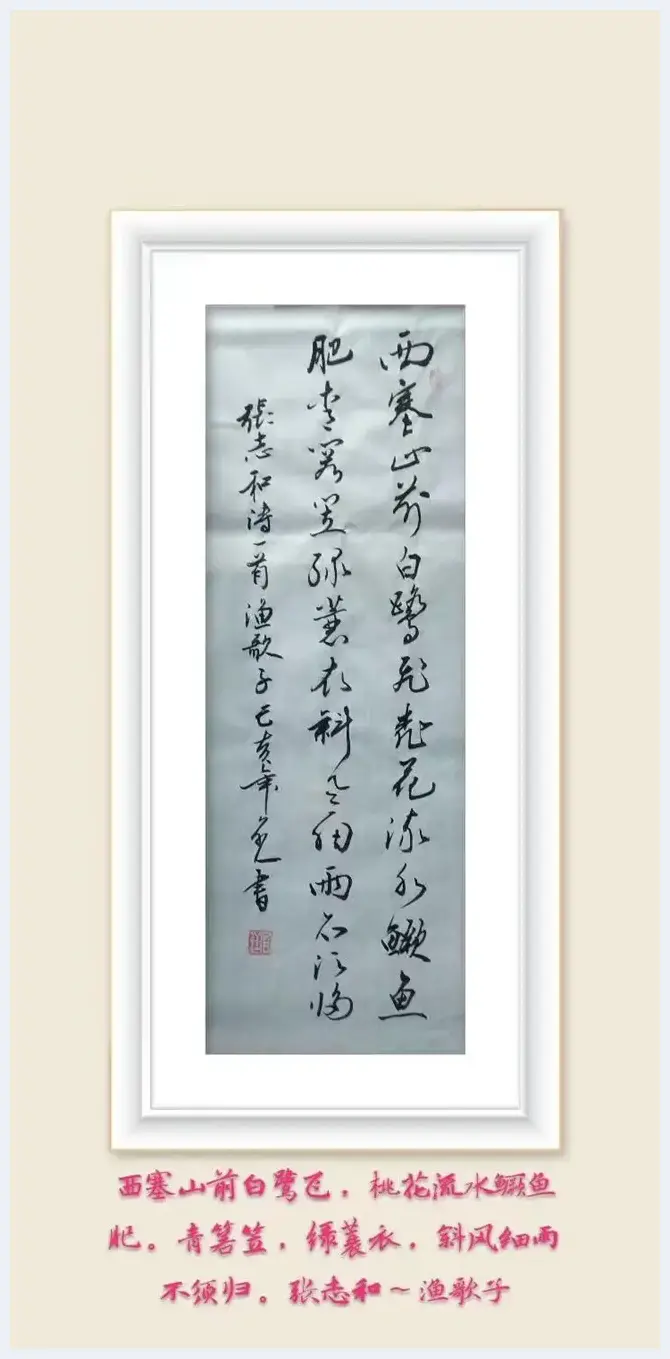 西塞山前白鹭飞桃花流水鳜鱼
肥青箬笠绿蓑衣斜风细雨不须归
張志和诗一首渔歌子己亥年 書
西塞山前白鹭飞，桃花流水鳜鱼
肥。青箬笠，绿蓑衣，斜风细雨
不须归。张志和～渔歌子